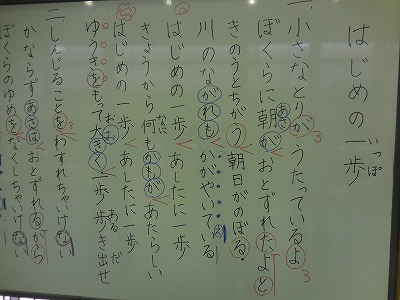 はじめの一歩
いっぽ
一、小さなとりが うたっているよ
3
3
ぼくらに朝が おとずれたよと
あさ
きのうとちがう 朝日がのぼる
川のながれも かがやいている
はじめの一歩 あしたに一歩
きょうから何もかもが あたらしい
なに
はじめの一歩 あしたに一歩
ゆうきをもって大きく 一歩 歩き出せ
おお
ある
だ
二、しんじることを わすれちゃいけない
かならずあさは おとずれるから
ぼくらのゆめを なくしちゃいけない